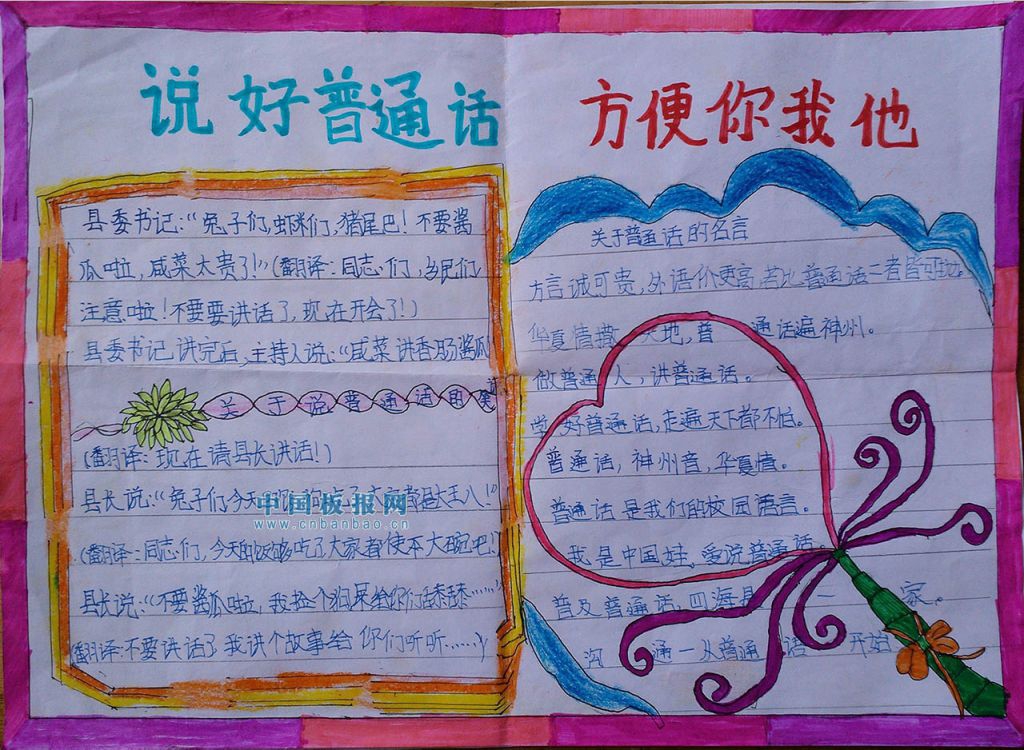 说好普通话 方便你我他
县委书记:“兔子们,虾米们,猪尾巴!不要酱
瓜啦,咸菜太贵了!”(翻译:同志们,乡民们
注意啦!不要要讲话了,现在开会了!)
县委书记讲完后,主持人说:“咸菜讲香肠酱瓜
关于说普通话的笑
(翻译:现在请县长讲话!)
县长说:“兔子们今天 大王八!”
(翻译:同志们,今天的饭够吃了大家都使不大碗吧!)
县长说:“不要酱瓜啦,我捡个狗屎给你们舔舔……”
翻译:不要讲话了我讲个故事给你们听听……)
中国板报网
www.cnbanbao.cn
关于普通话的名言
方言诚可贵,外语价更高,若比普通话二者皆可抛。
华夏情 天地,普 通话遍神州。
做普通人,讲普通话。
学好普通话,走遍天下都不怕。
普通话,神州音,华夏情。
普通话是我们的校园语言。
我是中国娃,爱说普通话。
普及普通话,四海是 一家。
沟 通一从普通 话 开始